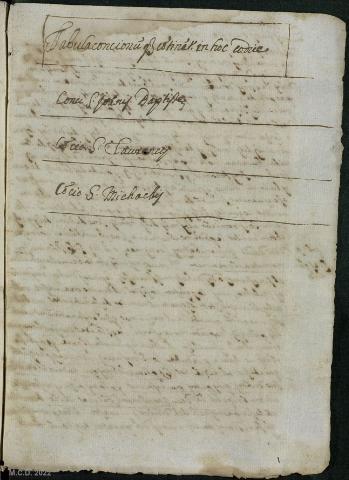 Tabula concionũ q̃ cõtinẽt in hoc codice
Concio S. Joãnis Baptistę
Cõcio S. Laurencij
Cõcio S. Michaelis
M.C.D. 2022